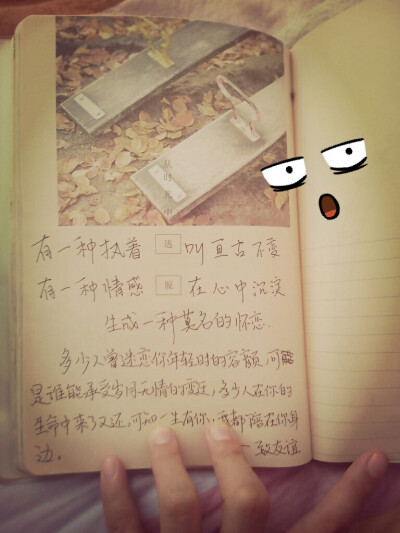 有一种执着 逃 叫亘古不变
有一种情感 脱 在心中沉淀
生成一种莫名的怀恋
多少人曾迷恋你年轻时的容颜,可
是谁能承受岁月无情的变迁,多少人在你的
生命中来了又还,可知一生有你,我都陪在你身
边。
——致友谊